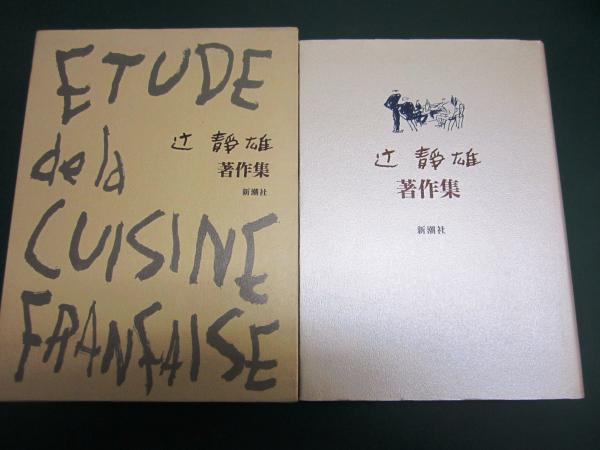 ETUDE
de la
CUISINE
FRANÇAISE
辻 静雄
著作集
新潮社
辻 静雄
著作集
新潮社